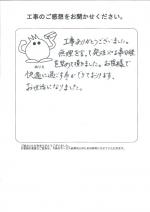 工事のご感想をお聞かせください。
工事ありがとうございました。
無理を言って発注から工事日程
を早めて頂きました。お陰様で
快適に過ごす事ができております。
お世話になりました。